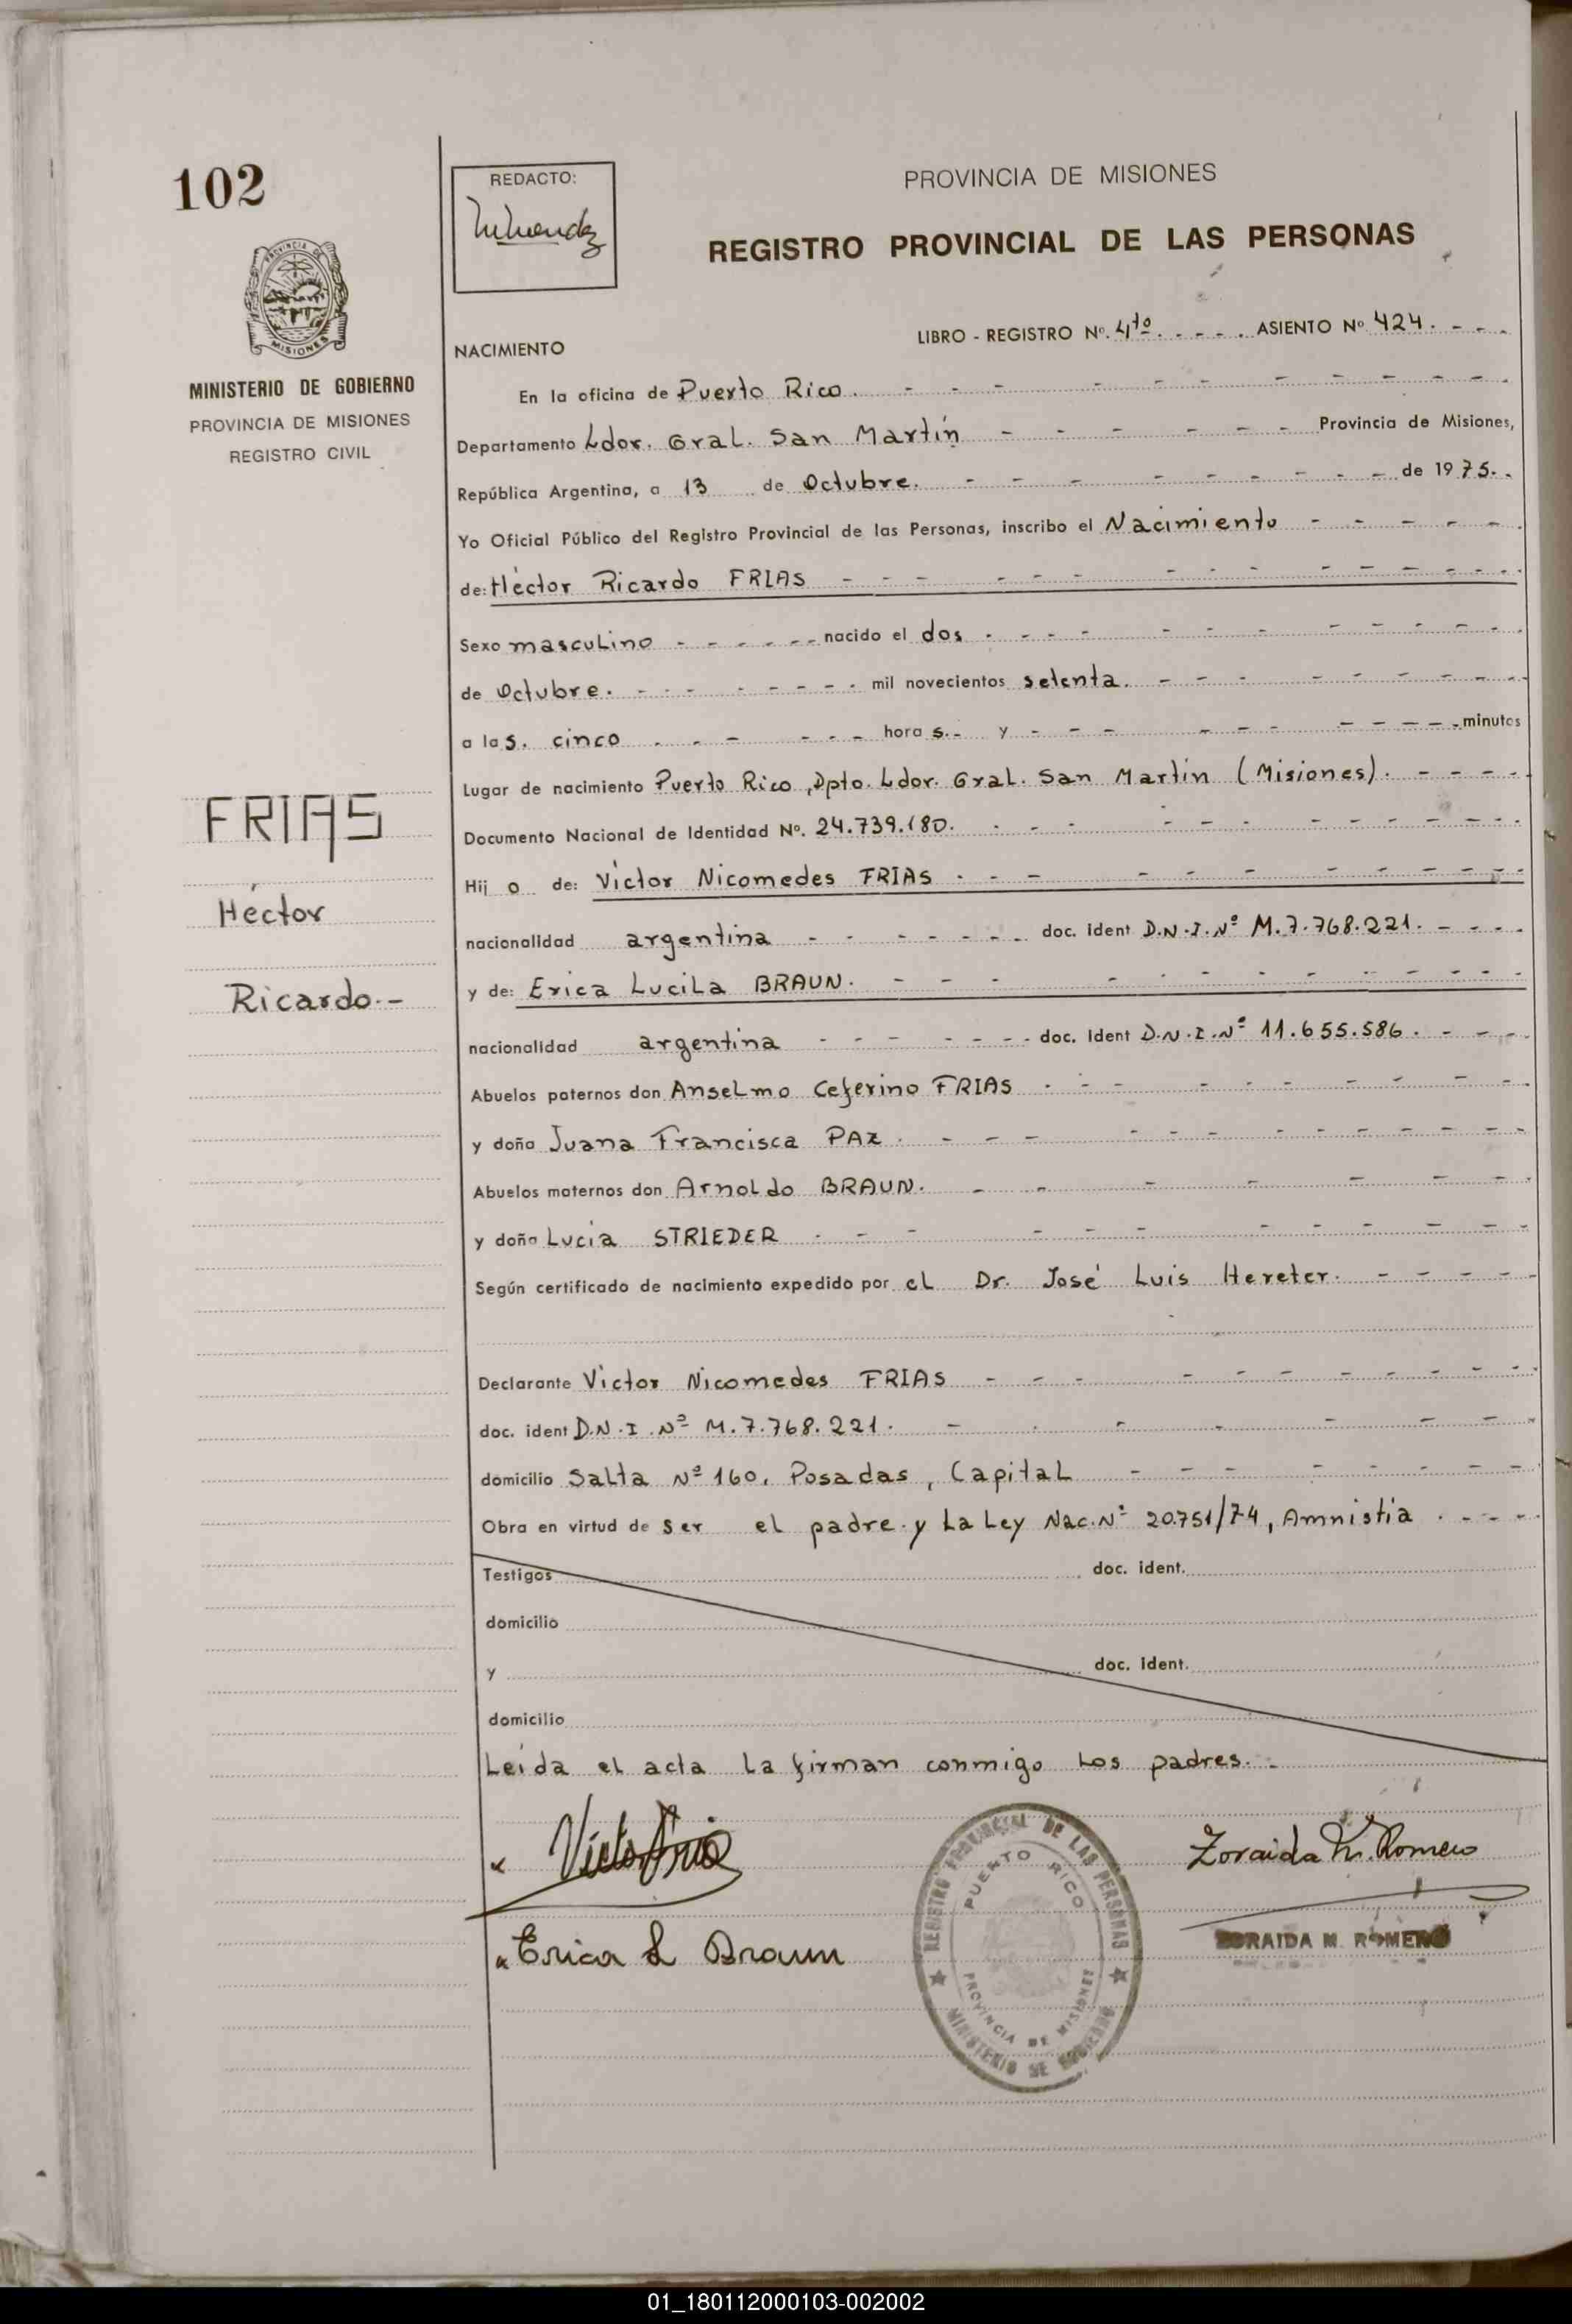 102
REDACTO:
PROVINCIA DE MISIONES
REGISTRO PROVINCIAL DE LAS PERSONAS
PROVINCIA DE
MISIONES
MINISTERIO DE GOBIERNO
PROVINCIA DE MISIONES
REGISTRO CIVIL
LIBRO - REGISTRO Nº. 4to. ASIENTO Nº 424.
NACIMIENTO
En la oficina de Puerto Rico.
Departamento Ldor. Gral. San Martín Provincia de Misiones,
República Argentina, a 13 de Octubre. de 1975.
Yo Oficial Público del Registro Provincial de las Personas, inscribo el Nacimiento
de: Héctor Ricardo FRIAS
Sexo masculino nacido el dos
de Octubre. mil novecientos setenta.
a las. cinco horas. y minutos
Lugar de nacimiento Puerto Rico, Dpto. Ldor. Gral. San Martín (Misiones).
Documento Nacional de Identidad Nº. 24.739.180.
Hijo de: Víctor Nicomedes FRIAS
nacionalidad argentina doc. ident D.N.I.Nº M.7.768.221.
y de: Erica Lucila BRAUN.
nacionalidad argentina doc. Ident D.N.I.Nº 11.655.586.
Abuelos paternos don Anselmo Ceferino FRIAS
y doña Juana Francisca PAZ.
Abuelos maternos don Arnoldo BRAUN.
y doña Lucía STRIEDER
Según certificado de nacimiento expedido por el Dr. José Luis Hereter.
Declarante Víctor Nicomedes FRIAS
doc. ident D.N.I.Nº M.7.768.221.
domicilio Salta Nº 160, Posadas, Capital
Obra en virtud de ser el padre y la Ley Nac. Nº 20.751/74, Amnistía
Testigos doc. ident.
domicilio
y doc. ident.
domicilio
Leída el acta la firman conmigo los padres.
FRIAS
Héctor
Ricardo.-
Victor Frias
Erica L Braun
REGISTRO PROVINCIAL DE LAS PERSONAS
PUERTO RICO
PROVINCIA DE MISIONES
MINISTERIO DE GOBIERNO
Zoraida M. Romero
ZORAIDA M. ROMERO
01_180112000103-002002